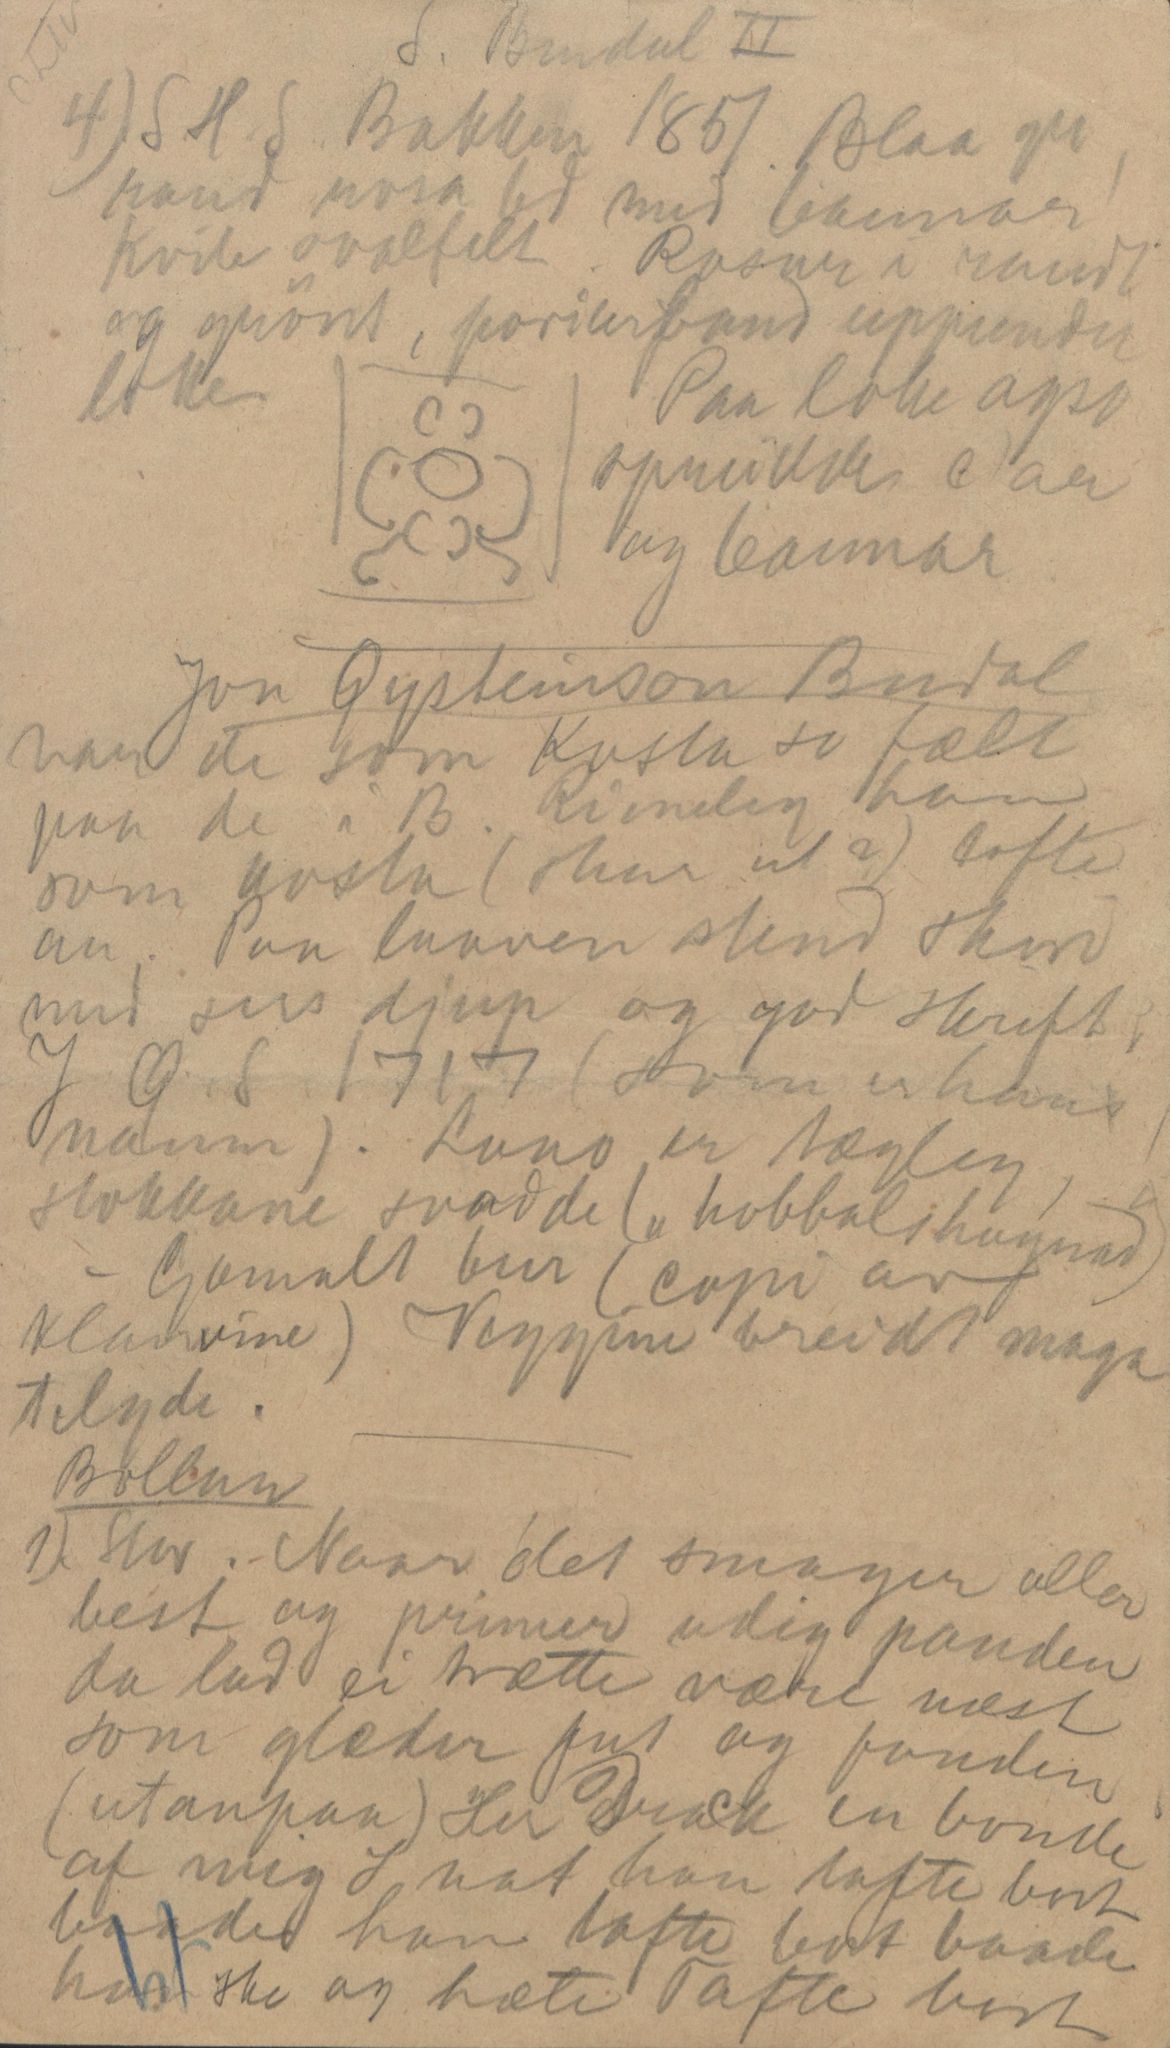 S. Budal II
4) S H S. Bakken 1851. Blaa gr
rand rosa bd med baunar
kvite ovalfelt. Rosur i raudt
og grönt, perlerband uppunder
loke
Paa loke ogso
sprikkde C'ar
og baunar
Jon Øysteinson Budal
var de som kosta so fælt
paa de i B. Rimeleg han
som kosta (skar ut?) lofte
au. Paa laaven stend skore
med sers djup og god skrift,
J Ø. S 1717 (som er hans
namn). Lano er tægleg,
stokkane svadde („hobbalshogne")
- Gamalt bur (copi av
klauvine) Veggine breidt maga
telgde.
Bollan
1). Stor. Naar det smager aller
best og primer udig panden
da lad ei trætte være næst
som glæder fut og fanden
(utanpaa) Her Drack en bonde
af mig I nat han tafte bort
baade han tafte bort baade
hanske og hæte Tafte bort